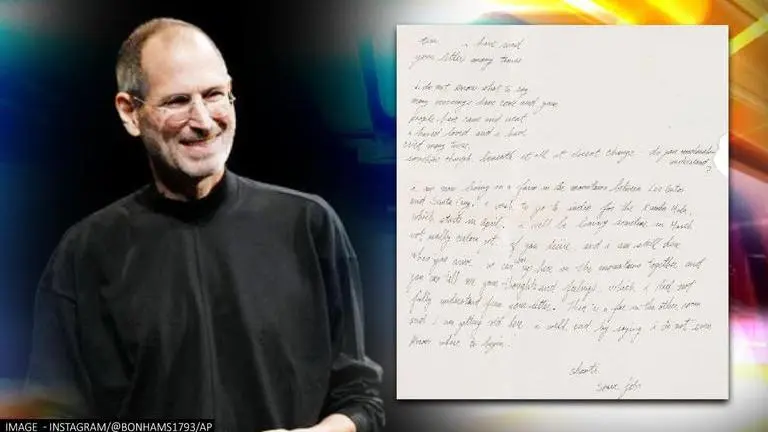 tim i have read
your letter many times
i do not know what to say
many mornings have come and gone
people have came and went
i have loved and i have
cried many times.
somehow though, beneath it all it doesnt change do you
understand?
i am now living on a farm in the mountains between Los Gatos
and Santa Cruz. i want to go to india for the Kumba Mela,
which starts in April. i will be leaving sometime in March
not really certain yet. if you desire, and i am still here
when you arrive, we can be here in the mountains together and
you can tell me your thoughts and feelings which i did not
fully understand from your letter. There is a fire in the other room
and i am getting cold here i will end by saying i do not even
know where to begin.
shanti
steve jobs
IMAGE - INSTAGRAM/@BONHAMS1793/AP